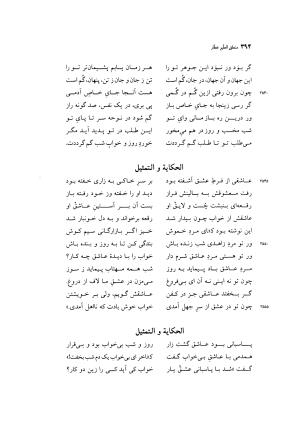 ۳۹۴ منطق‌الطیر عطار
گر بوَد ور نبوَد این جوهر تو را هر زمان یابم پشیمان‌تر تو را
این جهان و آن جهان، در جان، گُم است تن ز جان و جان ز تن، پنهان، گُم است
۳۵۴۰ چون برون رفتی ازین گم در گُمی هست آنجا جای خاصِ آدمی
گر رسی زینجا به جای خاص باز پی بری، در یک نفس، صد گونه راز
ور درین ره باز مانی وای تو گم شود در نوحه سر تا پای تو
شب مخسب و روز در هم می‌مخور این طلب در تو پدید آید مگر
می‌طلب تو تا طلب گم گرددت خوردِ روز و خوابِ شب گم گرددت
الحکایة و التمثیل
۳۵۴۵ عاشقی از فرطِ عشق آشفته بود بر سرِ خاکی به زاری خفته بود
رفت معشوقش به بالینش فراز دید او را خفته وز خود رفته باز
رقعه‌ای بنبشت چُست و لایقِ او بست آن بر آستینِ عاشقِ او
عاشقش از خواب چون بیدار شد رقعه برخواند و به دل خونبار شد
این نوشته بود کای مردِ خموش خیز اگر بازارگانی سیم کوش
۳۵۵۰ ور تو مردِ زاهدی شب زنده باش بندگی کن تا به روز و بنده باش
ور تو هستی مردِ عاشق شرم دار خواب را با دیدهٔ عاشق چه کار؟
مردِ عاشق باد پیماید به روز شب همه مهتاب پیماید ز سوز
چون تو نه اینی نه آن ای بی‌فروغ می‌مزن در عشقِ ما لاف از دروغ
گر بخفتد عاشقی جز در کفن عاشقش گویم، ولی بر خویشتن
۳۵۵۵ چون تو در عشق از سرِ جهل آمدی خواب خوش بادت که نااهل آمدی»
الحکایة و التمثیل
پاسبانی بود عاشق گشت زار روز و شب بی‌خواب بود و بی‌قرار
همدمی با عاشقِ بی‌خواب گفت کاخر ای بی‌خواب یک دم شب بخفت!»
گفت «شد با پاسبانی عشق یار خواب کی آید کسی را زین دو کار؟